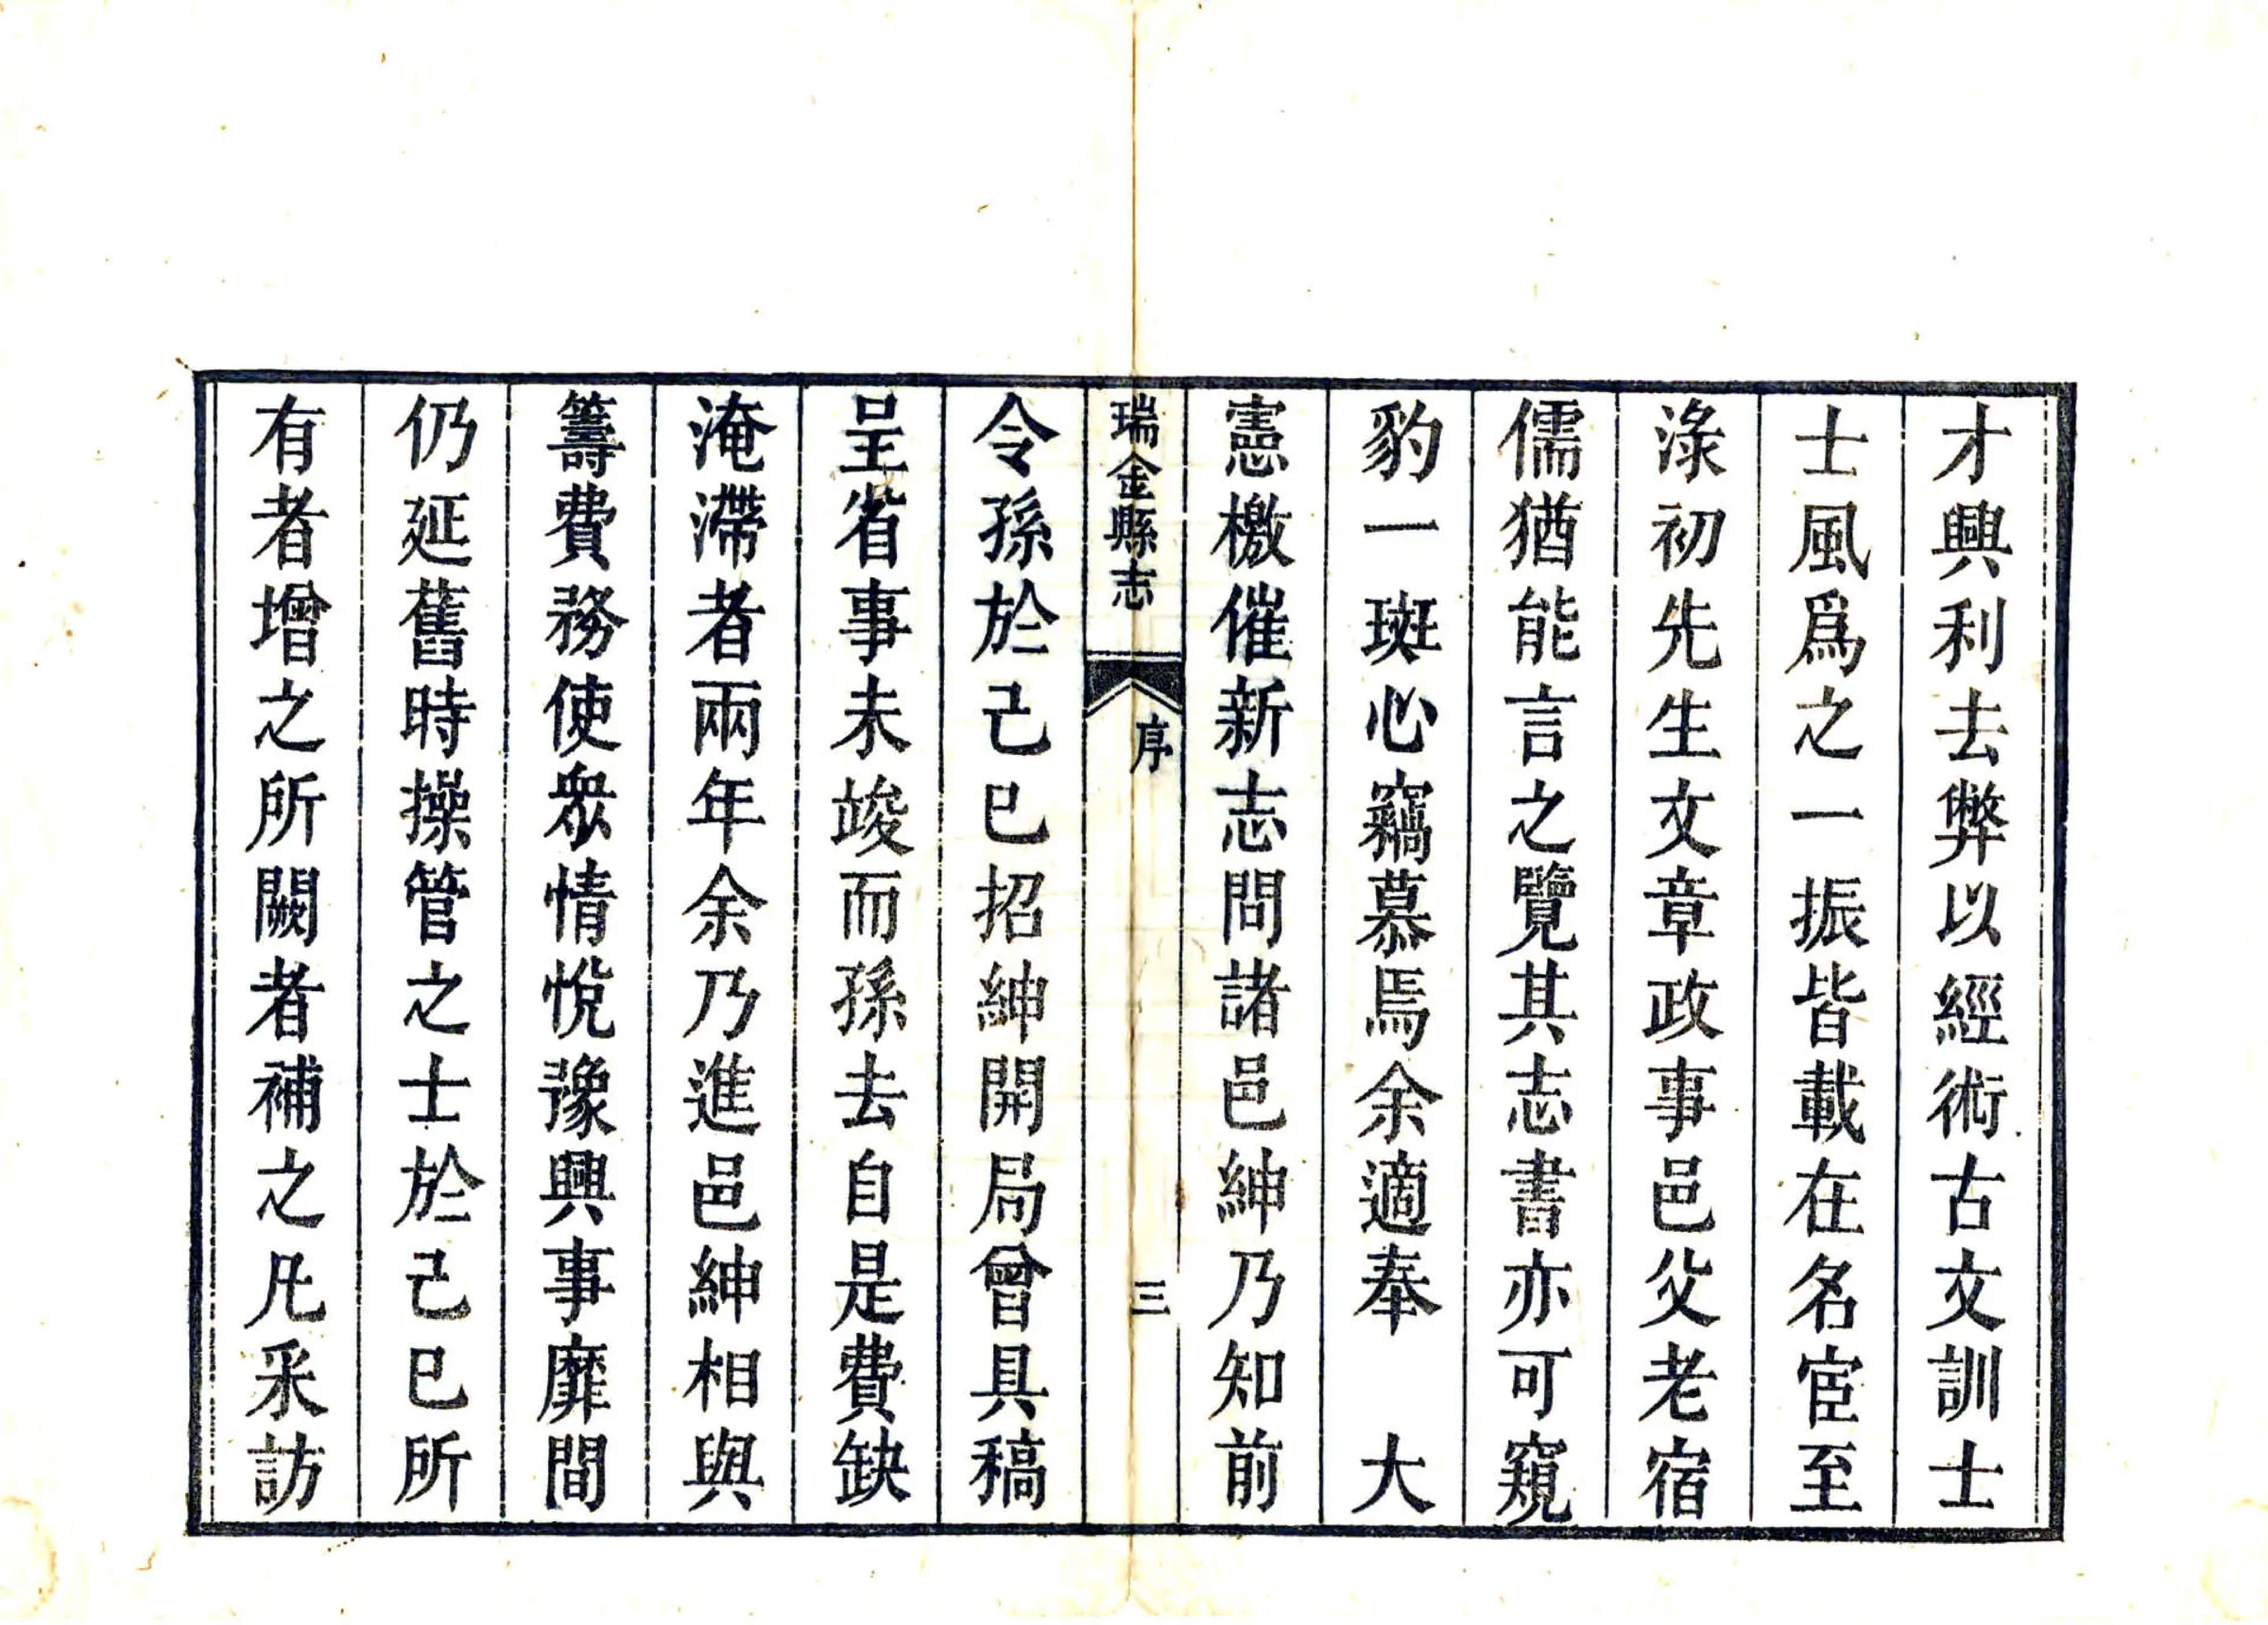 才興利去弊以經術古文訓士
士風爲之一振皆載在名宦至
淥初先生文章政事邑父老宿
儒猶能言之覽其志書亦可窺
豹一斑心竊慕焉余適奉　大
憲檄催新志問諸邑紳乃知前
瑞金縣志
序
三
令孫於己巳招紳開局曾具稿
呈省事未竣而孫去自是費缺
淹滯者兩年余乃進邑紳相與
籌費務使衆情悅豫興事靡間
仍延舊時操管之士於己巳所
有者增之所闕者補之凡采訪